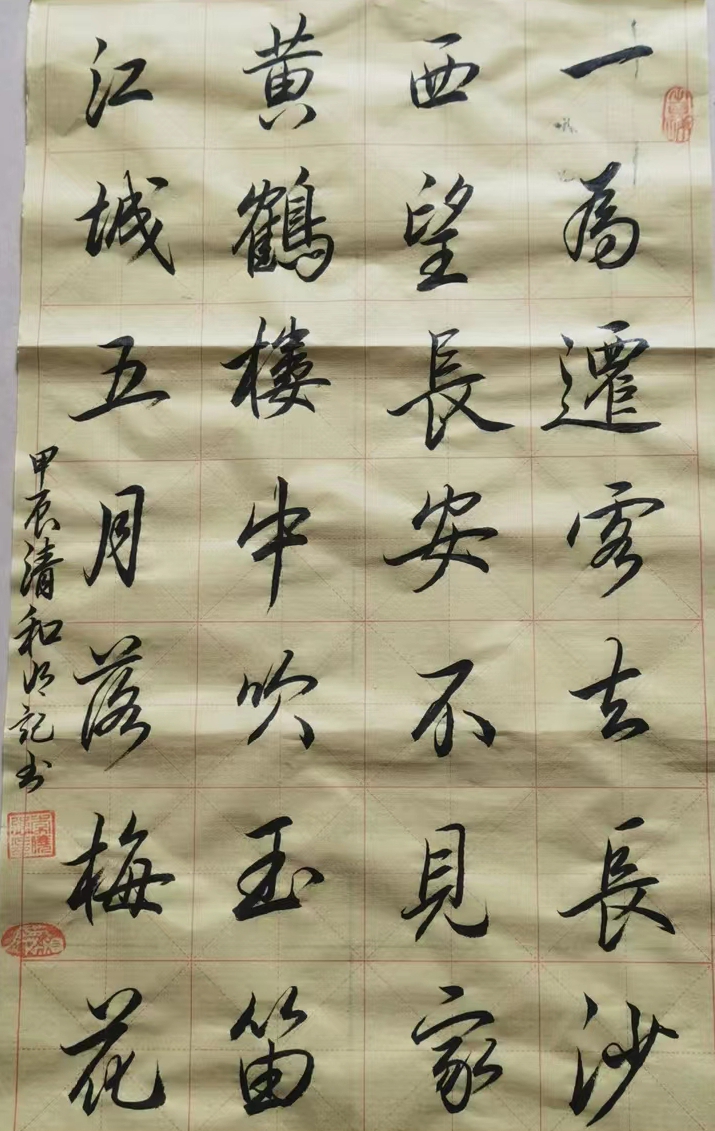 一為遷客去長沙
西望長安不見家
黄鶴樓中吹玉笛
江城五月落梅花
甲辰清和 記书